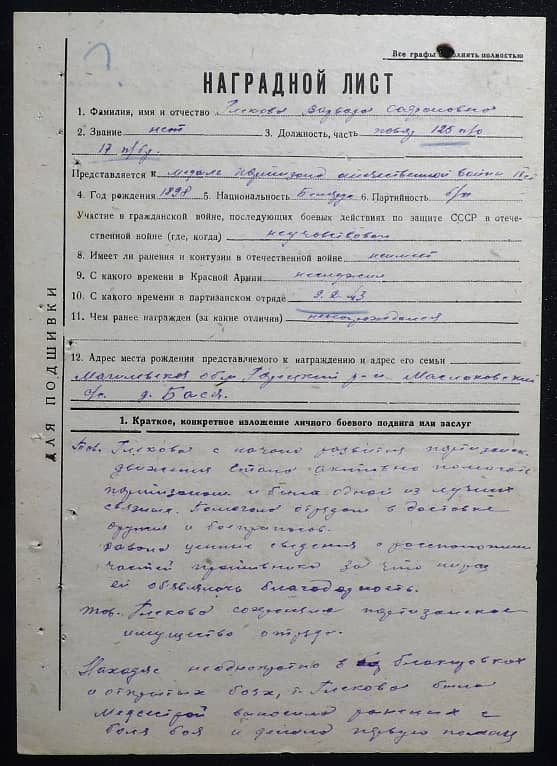 Все графы заполнять полностью
НАГРАДНОЙ ЛИСТ
1. Фамилия, имя и отчество Глекова Варвара
2. Звание нет 3. Должность, часть 125 п/о
17 п/бр.
Представляется к медаль Партизана отечественной войны
4. Год рождения 1898 5. Национальность 6. Партийность б/п
Участие в гражданской войне, последующих боевых действиях по защите СССР в отече-
ственной войне (где, когда) неучавствовал
8. Имеет ли ранения и контузии в отечественной войне неимеет
9. С какого времени в Красной Армии неслужил
10. С какого времени в партизанском отряде 43
11. Чем ранее награжден (за какие отличия) ненаграждался
12. Адрес места рождения представляемого к награждению и адрес его семьи
Могилевская обл Горецкий р-н Маслаковский
с/с д. Бася.
ДЛЯ ПОДШИВКИ
1. Краткое, конкретное изложение личного боевого подвига или заслуг
Тов. Глекова с начала развития партизанск.
движения стала активно помогать
партизанам и была одной из лучших
связных. Помогала отрядам в доставке
оружия и боеприпасов.
давала ценные сведения о расположении
частей противника за что
ей объявлялось благодарность.
тов. Глекова сохраняла партизанское
имущество отряда.
Находяс неоднократно в блакировках
и открытых боях, т. Глекова была
Медсестрой выносила раненых с
поля боя и делала первую помощ